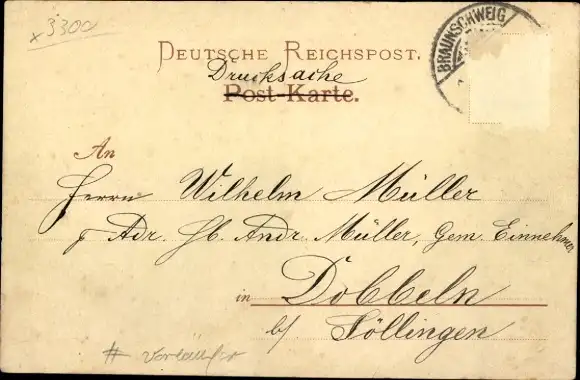 x 3300
BRAUNSCHWEIG
DEUTSCHE REICHSPOST.
Drucksache
Post-Karte.
An
Herrn Wilhelm Müller
Adr. Hb. Andr. Müller, Gem. Einnehmer
in Dobbeln
b/ Söllingen
# Vorläufer